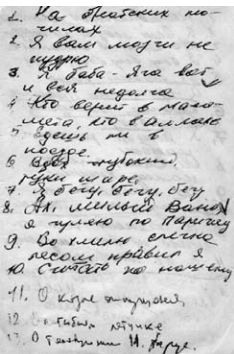 1. На братских мо-
гилах
2. Я вам мозги не
пудрю
3. Я баба-Яга вот
и вся недолга
4 Кто верит в Маго-
мета, кто в Аллаха
5 Едешь ли в
поезде
6 Вдох глубокий
руки шире,
7. Я бегу, бегу, бегу
8. Ах, милый Ваня
я гуляю по Парижу
9. Во хмелю слегка
лесом правил я
10. Считать по нашему
11. О
12.
13. О